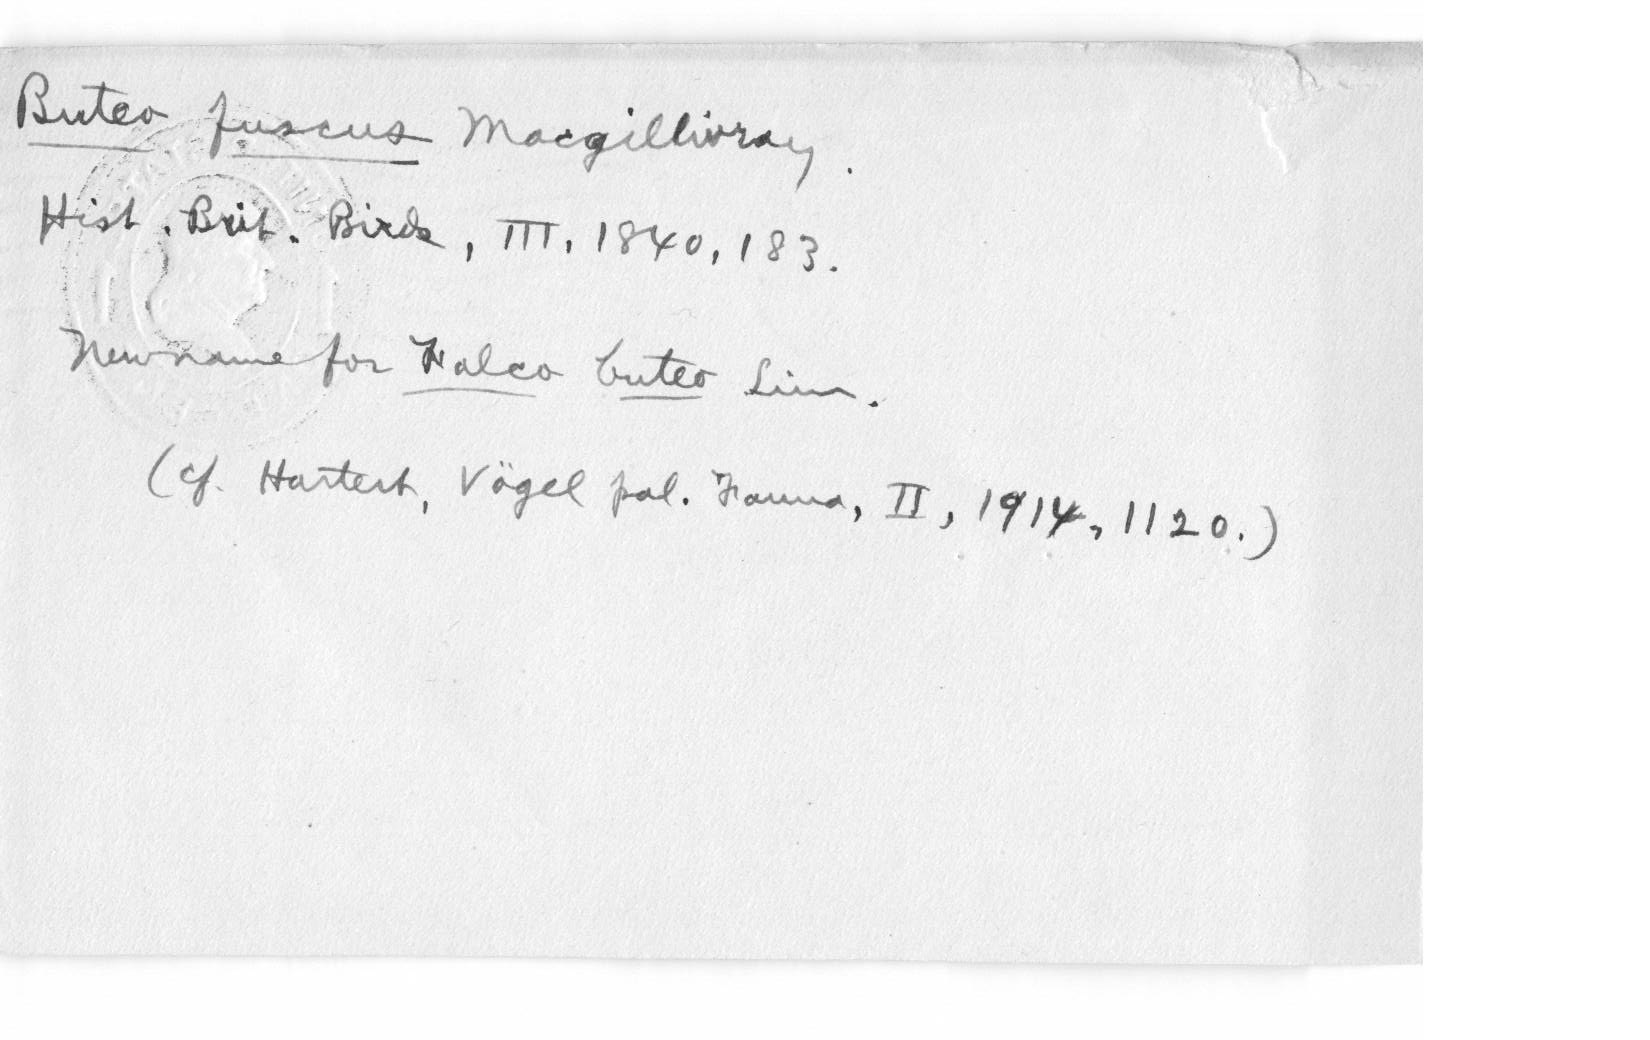 Buteo fuscus Macgillivray.
Hist. Brit. Birds, III, 1840, 183.
New name for Falco buteo Linn.
(cf. Hartert, Vögel pal. Fauna, II, 1914, 1120.)